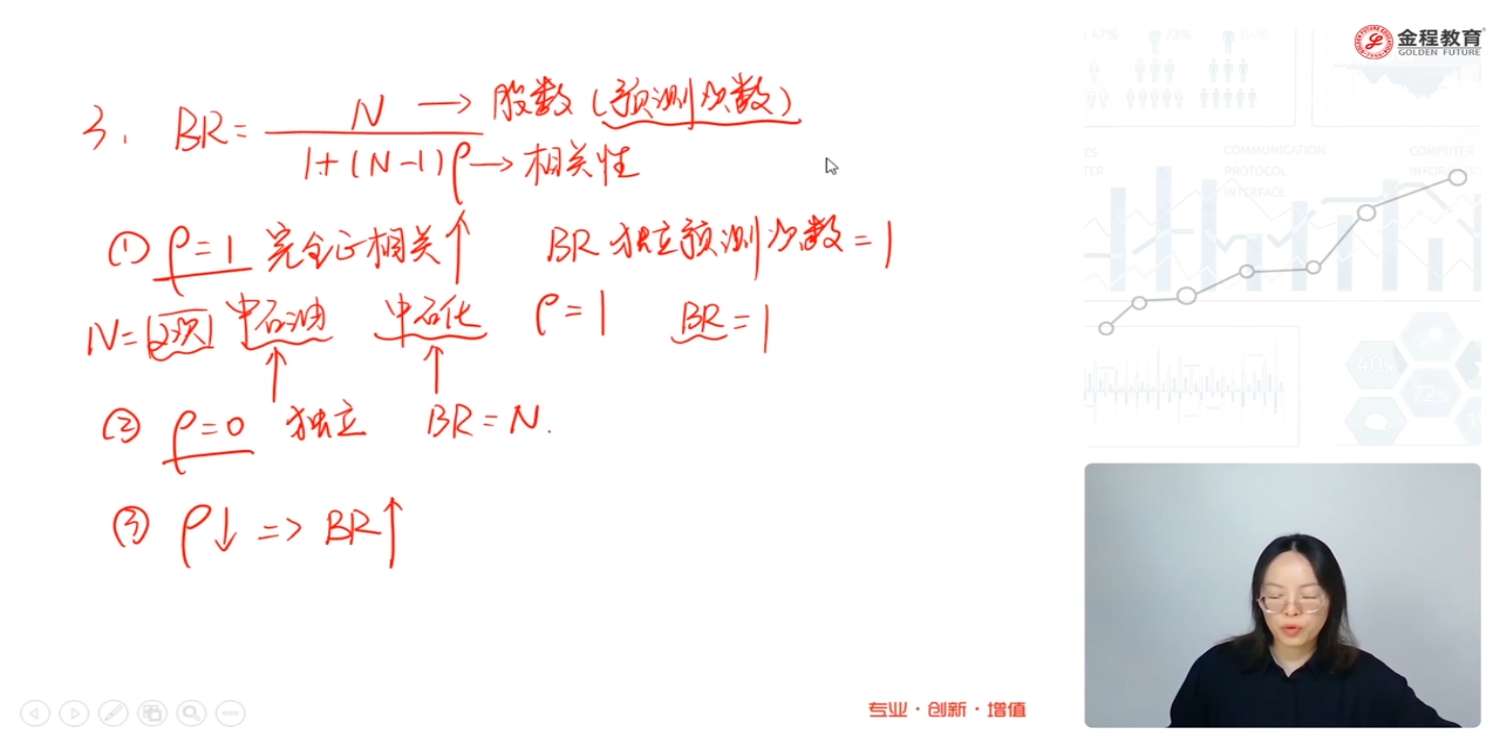 金程教育
GOLDEN FUTURE
3. BR = N / 1+(N-1)ρ
N → 股数 (预测次数)
ρ → 相关性
① ρ=1 完全正相关↑ BR 独立预测次数=1
N=2次 中石油 中石化 ρ=1 BR=1
↑ ↑
② ρ=0 独立 BR=N.
③ ρ↓ => BR↑
COMMUNICATION
PROTOCOL
INTERFACE
COMPUTER
专业·创新·增值